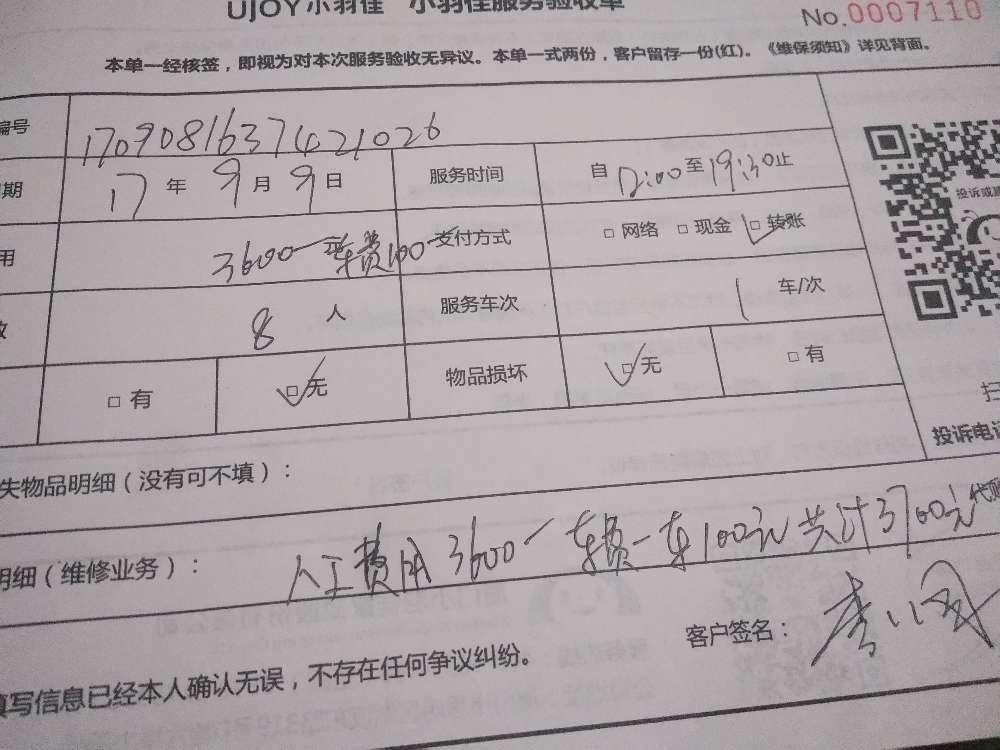 UJOY小羽佳 小羽佳服务验收单
No.0007110
本单一经核签，即视为对本次服务验收无异议。本单一式两份，客户留存一份(红)。《维保须知》详见背面。
编号 1709081637421026
期 17 年 9 月 9 日 服务时间 自 12:00 至 19:30 止
用 3600一 车费100 支付方式 □ 网络 □ 现金 □ 转账
8 人 服务车次 1 车/次
□ 有 □ 无 物品损坏 □ 无 □ 有
投诉或
扫
投诉电话
失物品明细（没有可不填）：
明细（维修业务）： 人工费用3600一 车费一车100元 共计3700元
客户签名：
填写信息已经本人确认无误，不存在任何争议纠纷。